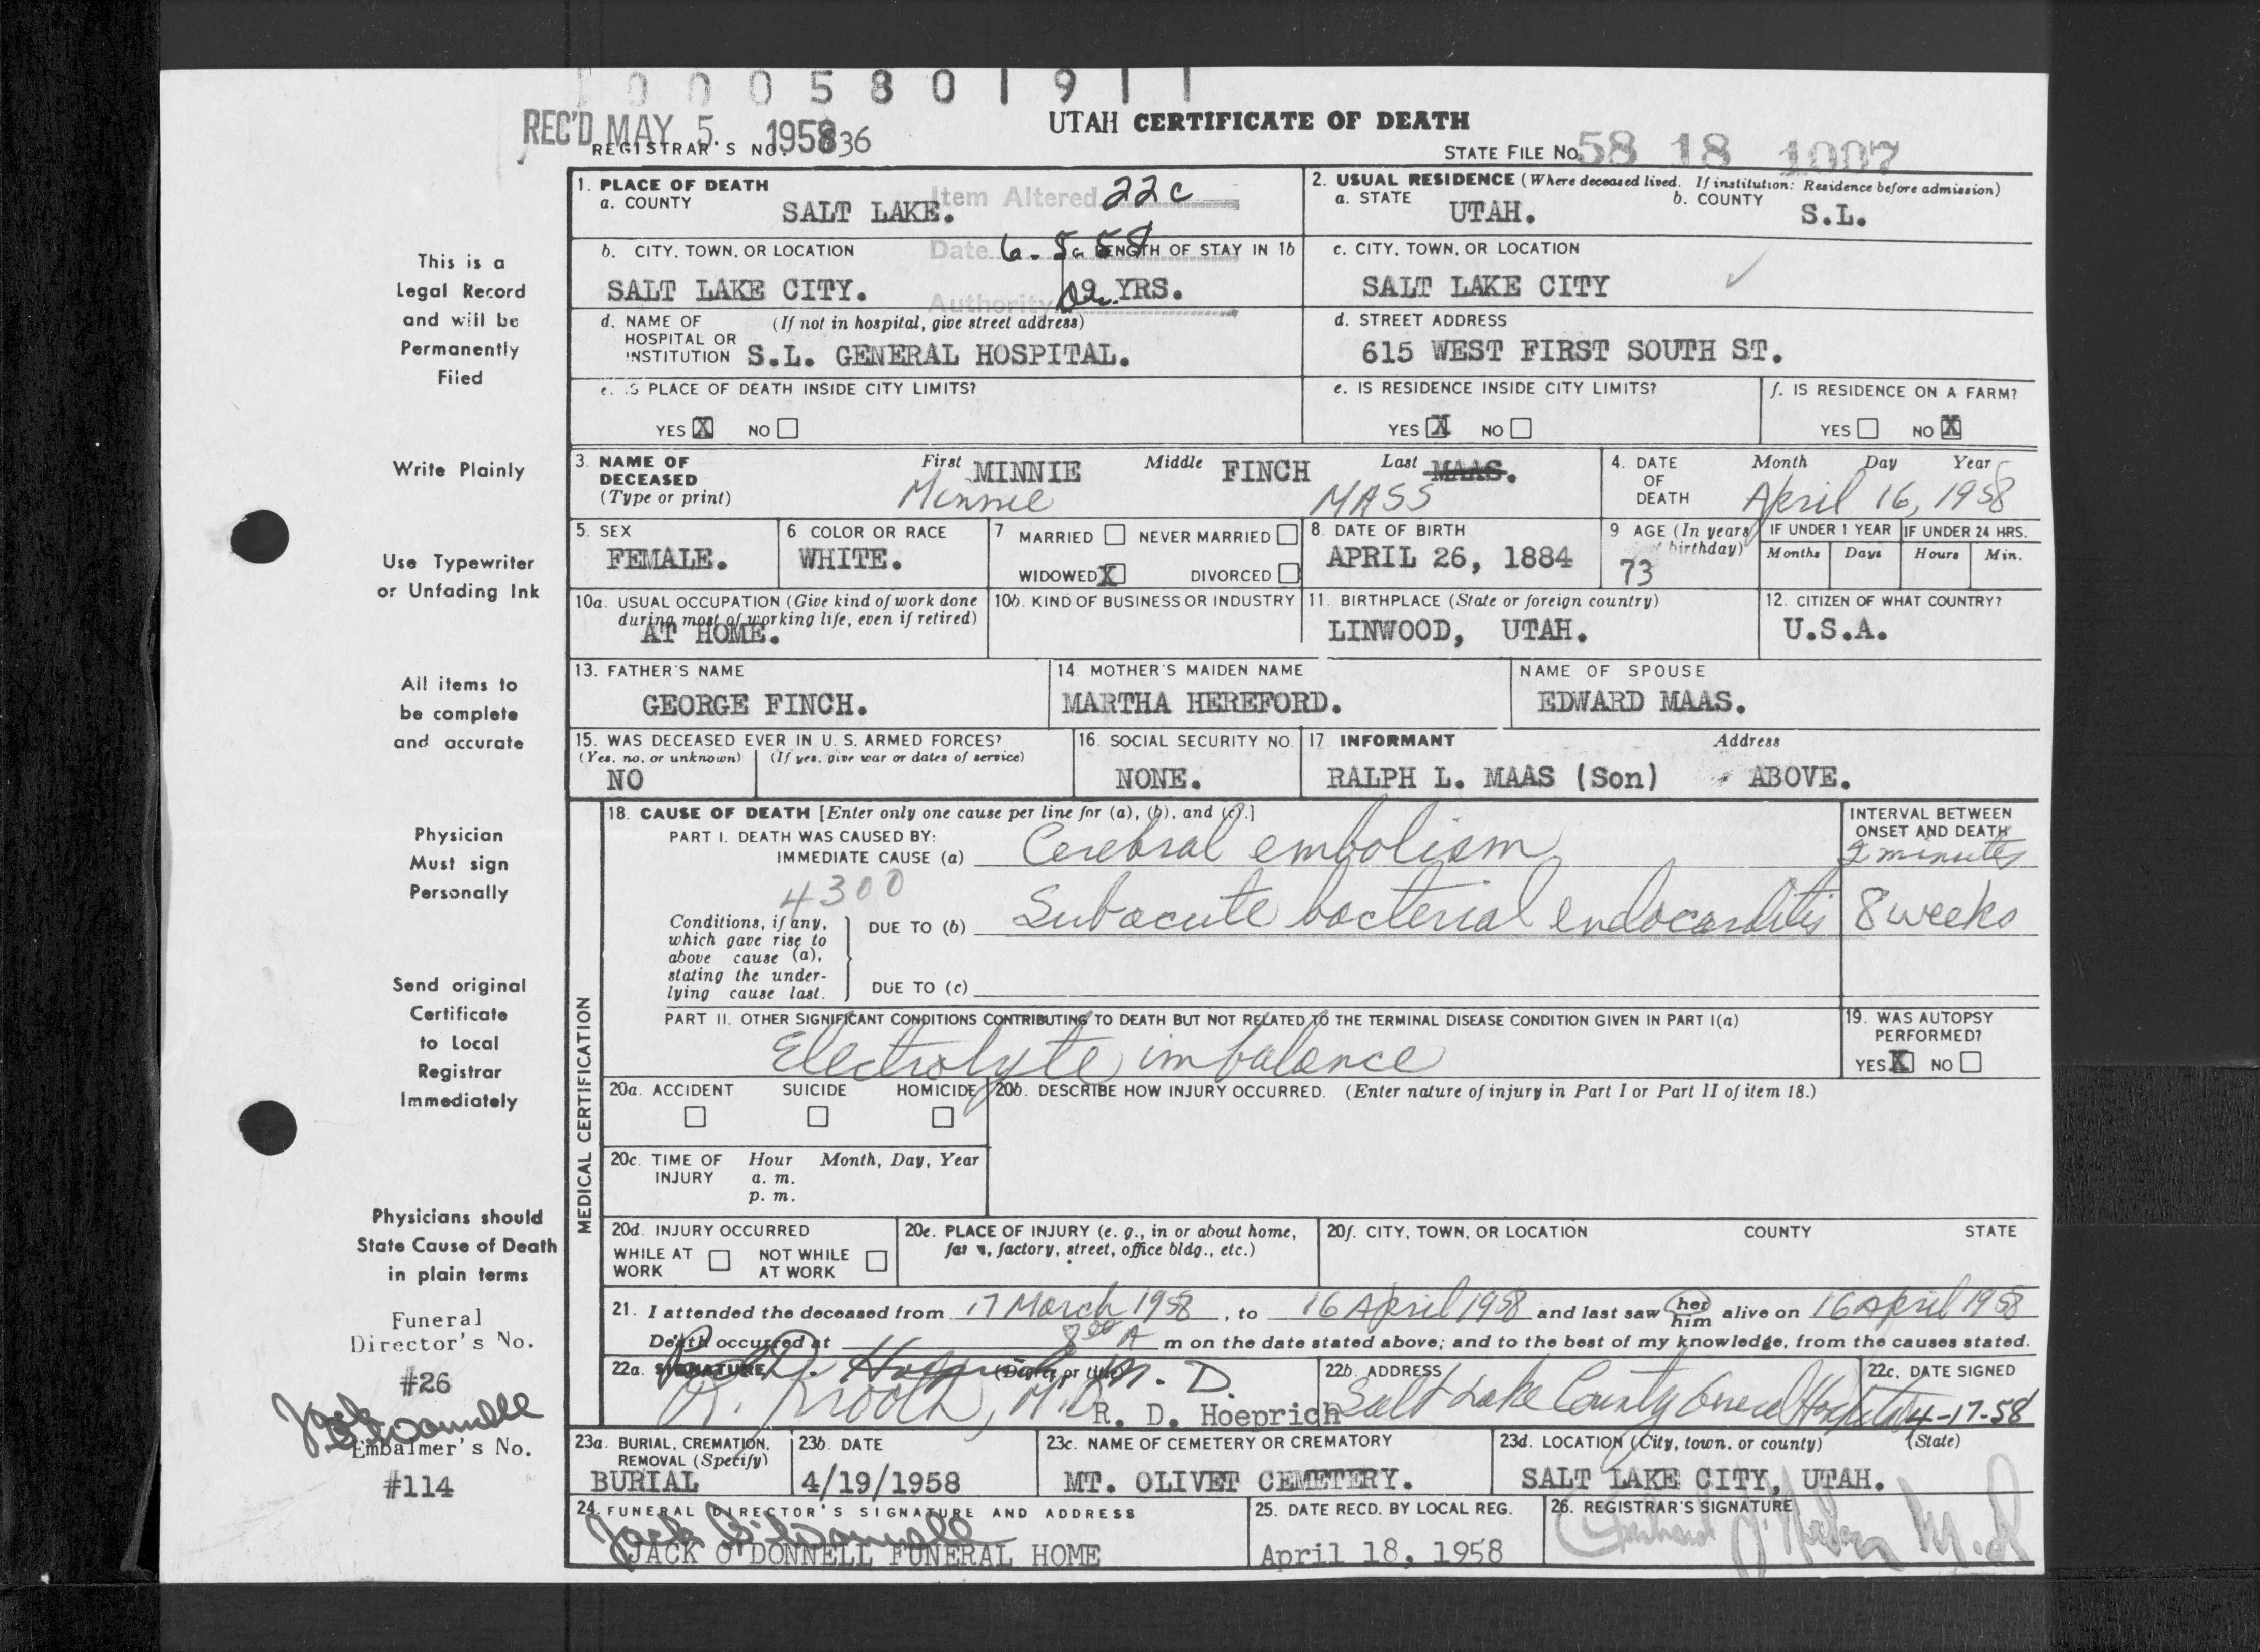 0005801911
REC'D MAY 5. 1958
REGISTRAR'S NO. 836
UTAH CERTIFICATE OF DEATH
STATE FILE No. 58 18 1007
This is a
Legal Record
and will be
Permanently
Filed
Write Plainly
Use Typewriter
or Unfading Ink
All items to
be complete
and accurate
Physician
Must sign
Personally
Send original
Certificate
to Local
Registrar
Immediately
Physicians should
State Cause of Death
in plain terms
Funeral
Director's No.
#26
Embalmer's No.
#114
1. PLACE OF DEATH
a. COUNTY
SALT LAKE.
Item Altered 22c
Date 6-5-58
Authority
2. USUAL RESIDENCE (Where deceased lived. If institution: Residence before admission)
a. STATE UTAH.
b. COUNTY S.L.
b. CITY, TOWN, OR LOCATION
SALT LAKE CITY.
c. LENGTH OF STAY IN 1b
YRS.
c. CITY, TOWN, OR LOCATION
SALT LAKE CITY
d. NAME OF HOSPITAL OR INSTITUTION (If not in hospital, give street address)
S.L. GENERAL HOSPITAL.
d. STREET ADDRESS
615 WEST FIRST SOUTH ST.
e. IS PLACE OF DEATH INSIDE CITY LIMITS?
YES X NO
e. IS RESIDENCE INSIDE CITY LIMITS?
YES X NO
f. IS RESIDENCE ON A FARM?
YES NO X
3. NAME OF DECEASED (Type or print)
First MINNIE Middle FINCH Last MAAS.
Minnie MASS
4. DATE OF DEATH
Month Day Year
April 16, 1958
5. SEX
FEMALE.
6. COLOR OR RACE
WHITE.
7 MARRIED NEVER MARRIED
WIDOWED X DIVORCED
8. DATE OF BIRTH
APRIL 26, 1884
9 AGE (In years birthday)
73
IF UNDER 1 YEAR
Months Days
IF UNDER 24 HRS.
Hours Min.
10a. USUAL OCCUPATION (Give kind of work done during most of working life, even if retired)
AT HOME.
10b. KIND OF BUSINESS OR INDUSTRY
11. BIRTHPLACE (State or foreign country)
LINWOOD, UTAH.
12. CITIZEN OF WHAT COUNTRY?
U.S.A.
13. FATHER'S NAME
GEORGE FINCH.
14. MOTHER'S MAIDEN NAME
MARTHA HEREFORD.
NAME OF SPOUSE
EDWARD MAAS.
15. WAS DECEASED EVER IN U. S. ARMED FORCES?
(Yes, no, or unknown) (If yes, give war or dates of service)
NO
16. SOCIAL SECURITY NO.
NONE.
17. INFORMANT Address
RALPH L. MAAS (Son) ABOVE.
MEDICAL CERTIFICATION
18. CAUSE OF DEATH [Enter only one cause per line for (a), (b), and (c).]
PART I. DEATH WAS CAUSED BY:
IMMEDIATE CAUSE (a) Cerebral embolism
INTERVAL BETWEEN ONSET AND DEATH
2 minutes
4300
Conditions, if any, which gave rise to above cause (a), stating the underlying cause last.
DUE TO (b) Subacute bacterial endocarditis 8 weeks
DUE TO (c)
PART II. OTHER SIGNIFICANT CONDITIONS CONTRIBUTING TO DEATH BUT NOT RELATED TO THE TERMINAL DISEASE CONDITION GIVEN IN PART I(a)
Electrolyte imbalance
19. WAS AUTOPSY PERFORMED?
YES X NO
20a. ACCIDENT SUICIDE HOMICIDE
20b. DESCRIBE HOW INJURY OCCURRED. (Enter nature of injury in Part I or Part II of item 18.)
20c. TIME OF INJURY
Hour Month, Day, Year
a. m.
p. m.
20d. INJURY OCCURRED
WHILE AT WORK NOT WHILE AT WORK
20e. PLACE OF INJURY (e. g., in or about home, farm, factory, street, office bldg., etc.)
20f. CITY, TOWN, OR LOCATION COUNTY STATE
21. I attended the deceased from 17 March 1958, to 16 April 1958 and last saw her him alive on 16 April 1958
Death occurred at 8 00 A m on the date stated above; and to the best of my knowledge, from the causes stated.
22a. SIGNATURE (Degree or title) M. D.
R. D. Hoeprich
22b. ADDRESS
Salt Lake County General Hospital
22c. DATE SIGNED
4-17-58
23a. BURIAL, CREMATION, REMOVAL (Specify)
BURIAL
23b. DATE
4/19/1958
23c. NAME OF CEMETERY OR CREMATORY
MT. OLIVET CEMETERY.
23d. LOCATION (City, town, or county) (State)
SALT LAKE CITY, UTAH.
24. FUNERAL DIRECTOR'S SIGNATURE AND ADDRESS
Jack O'Donnell
JACK O'DONNELL FUNERAL HOME
25. DATE RECD. BY LOCAL REG.
April 18, 1958
26. REGISTRAR'S SIGNATURE